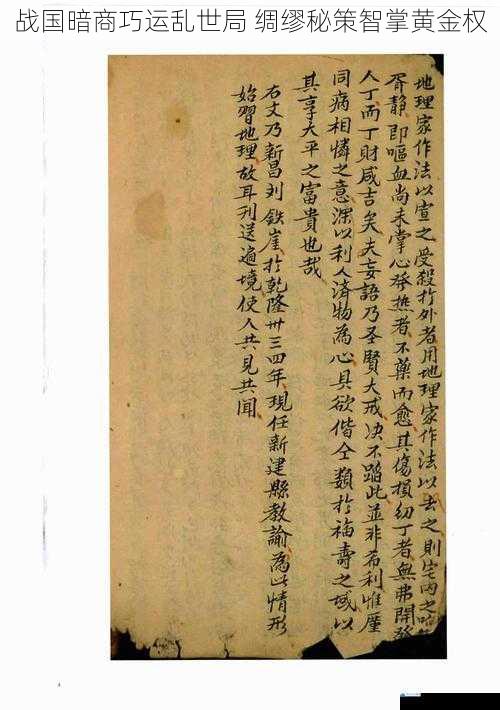 战国暗商巧运乱世局 绸缪秘策智掌黄金权
地理家作法以宣之受殺於外者用地理家作法以去之則宅内之
胥靜即嘔血尚未掌心發热者不藥而愈其傷損幼丁者無弗開發
人丁而丁財咸吉矣夫妄語乃圣賢大戒决不蹈此並非希利惟厪
同病相憐之意深以利人済物為心具欲偕仝類於福壽之域以
其享天平之富貴也哉
右文乃新昌刘鉄崖於乾隆卅三四年現任新建縣教諭為此情形
始習地理故耳刊送遍境使人共見共聞